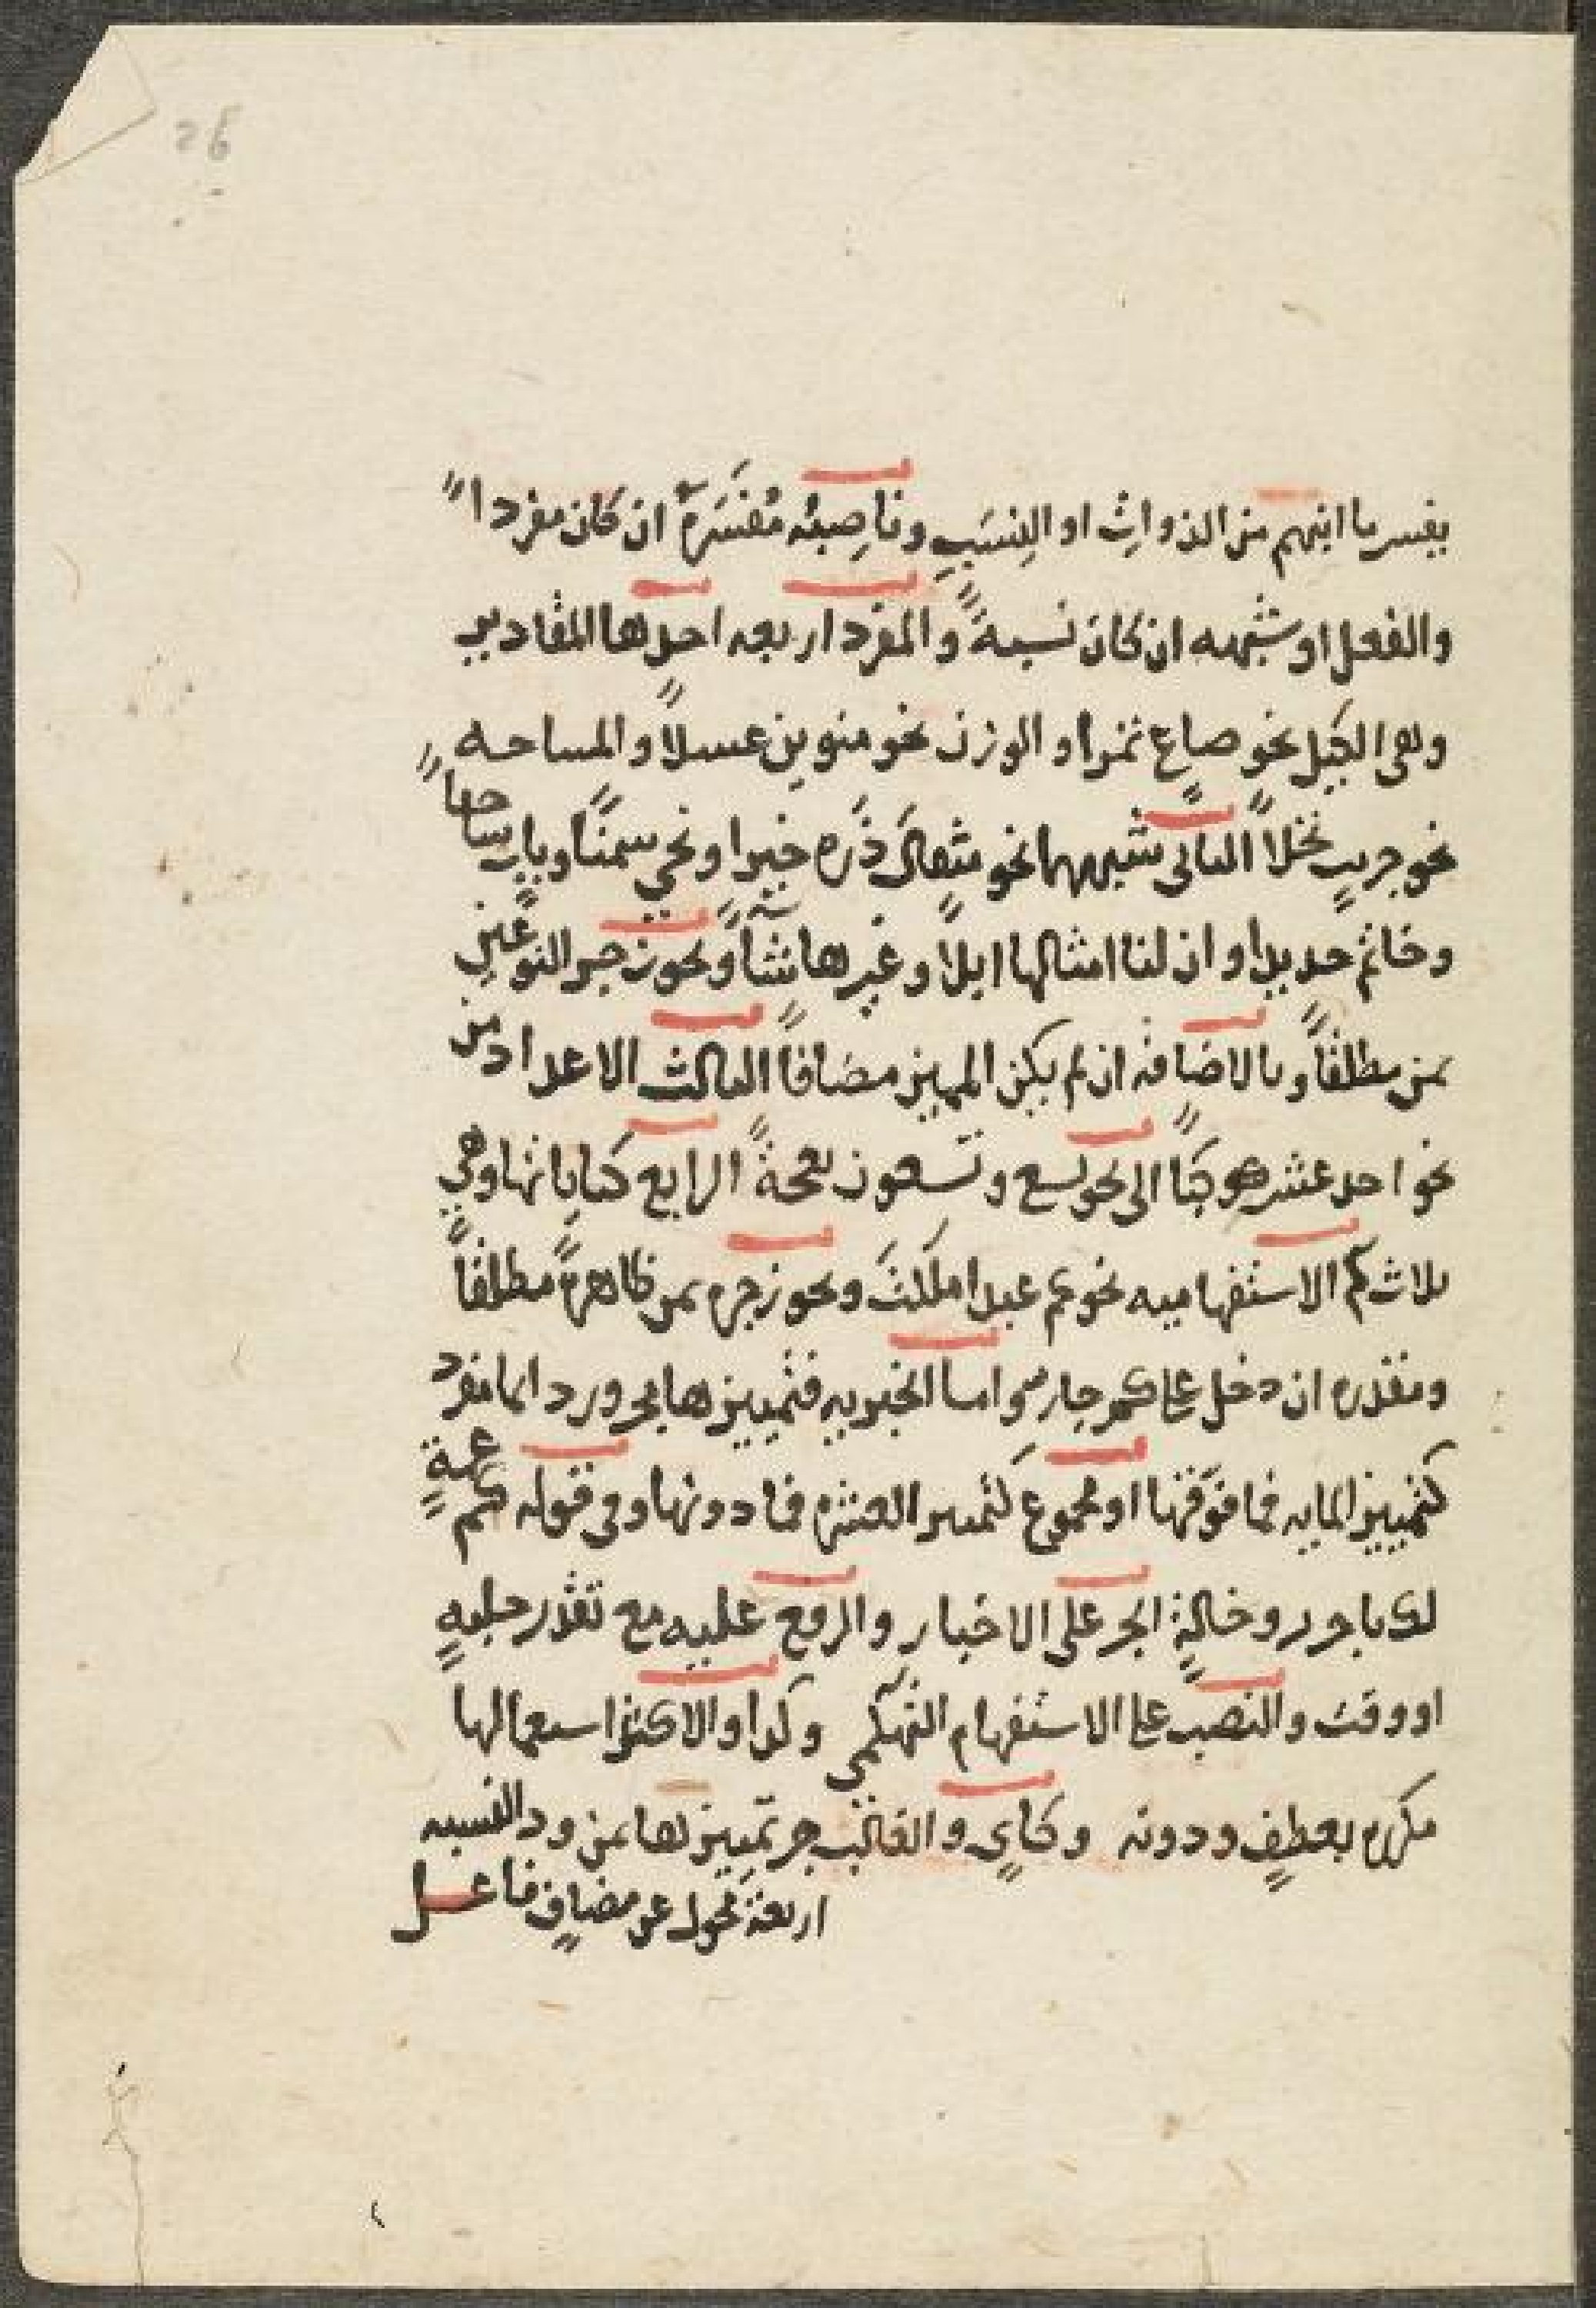 26
يفسر ما ابنهم من الذواتِ او النِسَبِ وناصِبُه مُفسَّرَهُ ان كان مفرداً
والفعل او شبهه ان كان نسبةً والمفرد اربعه احدها المقادير
وهي الكيل نحو صاعٍ تمرا والوزن نحو منوين عسلاً والمساحه
نحو جريبٍ نخلاً الثاني شبههما نحو مثقالَ ذَره خيرا ونحي سمنًا وباب ساجاً
وخاتم حديدا وان لنا امثالها ابلاً وغيرها شآءً ويجوز جر النوعين
بمن مطلقاً وبالاضافه ان لم يكن المميز مضافاً الثالث الاعداد من
نحو احد عشر كوكبًا الى نحو تسع وتسعون نعجةً الرابع كناياتها وهي
ثلاث كم الاستفهاميه نحو كم عبدا ملكتَ ويجوز جره بمن ظاهرةً مطلقاً
ومقدره ان دخل على كم جار واما الخبريه فتمييزها مجرور دايما مفرد
كتمييز المايه فما فوقها او مجموع كتمييز العشره فما دونها وفي قوله كم عمةٍ
لك يا جرير وخالةٍ الجر على الاخبار والرفع عليه مع تقدر حلبهٍ
او وقت والنصب على الاستفهام التهكمي وكذا والاكثر استعمالها
مكرره بعطفٍ ودونه وكايٍ والغالب جر تمييزها بمن وذ النسبه
اربعة محول عن مضافٍ فاعل